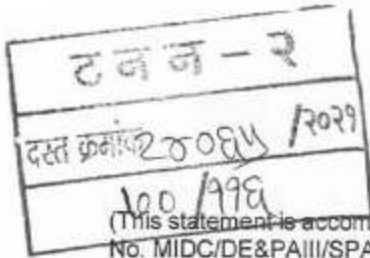 ट न न - २
दस्त क्रमांक २४०६५ /२०२१
१०० /११६
(This statement is accom
No. MIDC/DE&PAIII/SPA